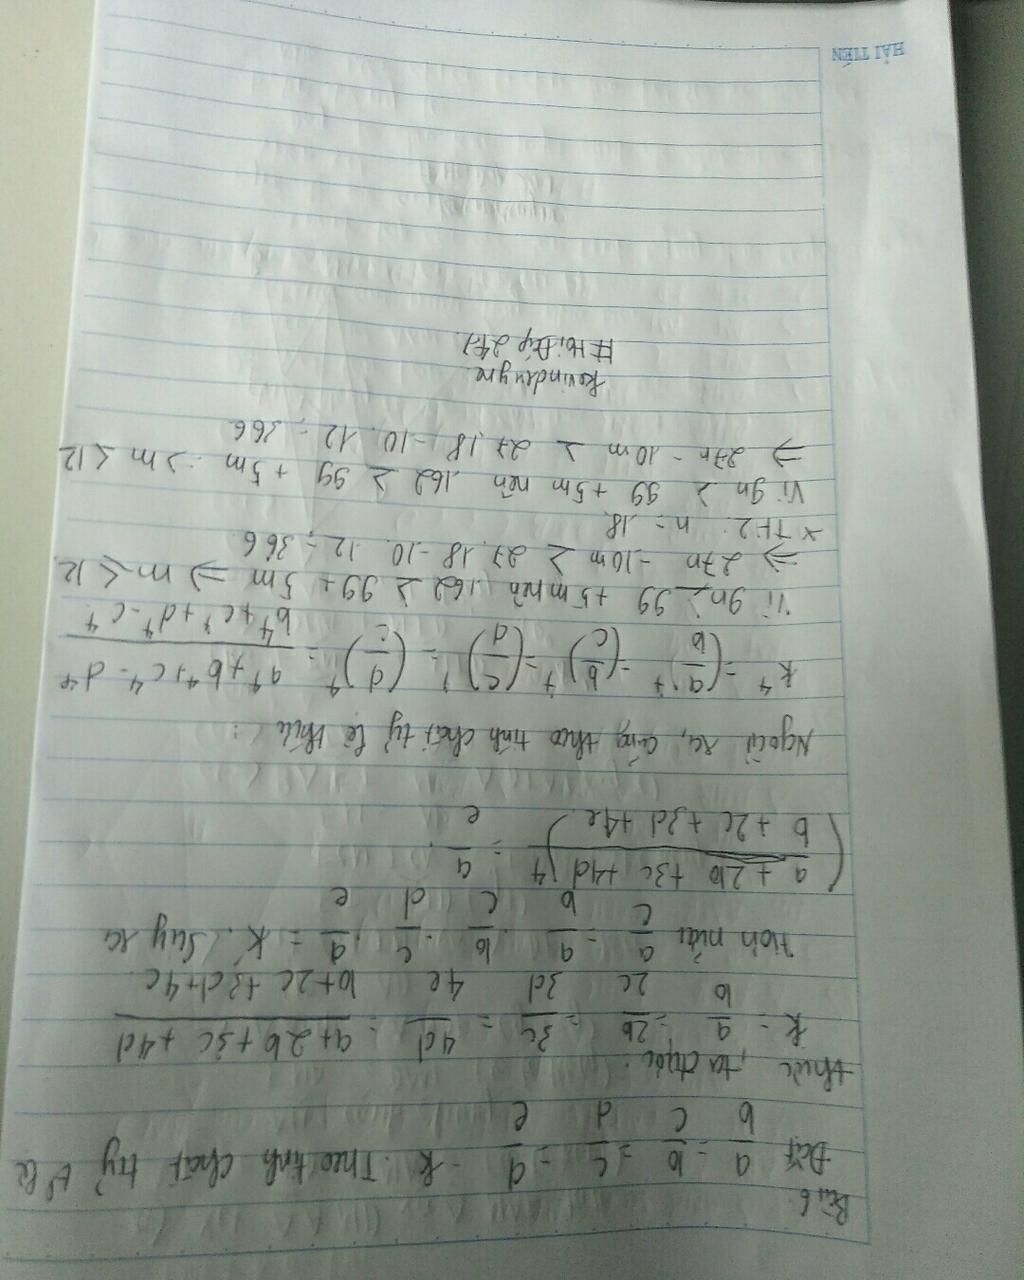 Bài 6
Đặt a/b = b/c = c/d = d/e = k. Theo tính chất tỷ lệ
thức, ta được:
k = a/b = 2b/2c = 3c/3d = 4d/4e = a+2b+3c+4d/b+2c+3d+4e
Hơn nữa a/c = a/b . b/c . c/d . d/e = k. Suy ra
(a+2b+3c+4d/b+2c+3d+4e)^4 = a/e
Ngoài ra, cũng theo tính chất tỷ lệ thức:
k^4 = (a/b)^4 = (b/c)^4 = (c/d)^4 = (d/c)^4 = a^4+b^4+c^4-d^4/b^4+c^4+d^4-c^4
Vì 9n ≥ 99 + 5m nên 162 ≥ 99 + 5m => m ≤ 12
=> 27n - 10m ≥ 27.18 - 10.12 = 366
* TH2: n = 18
Vì 9n ≥ 99 + 5m nên 162 ≥ 99 + 5m => m ≤ 12
=> 27n - 10m ≥ 27.18 - 10.12 = 366
# Hỏi Đáp 247
HẢI TIẾN